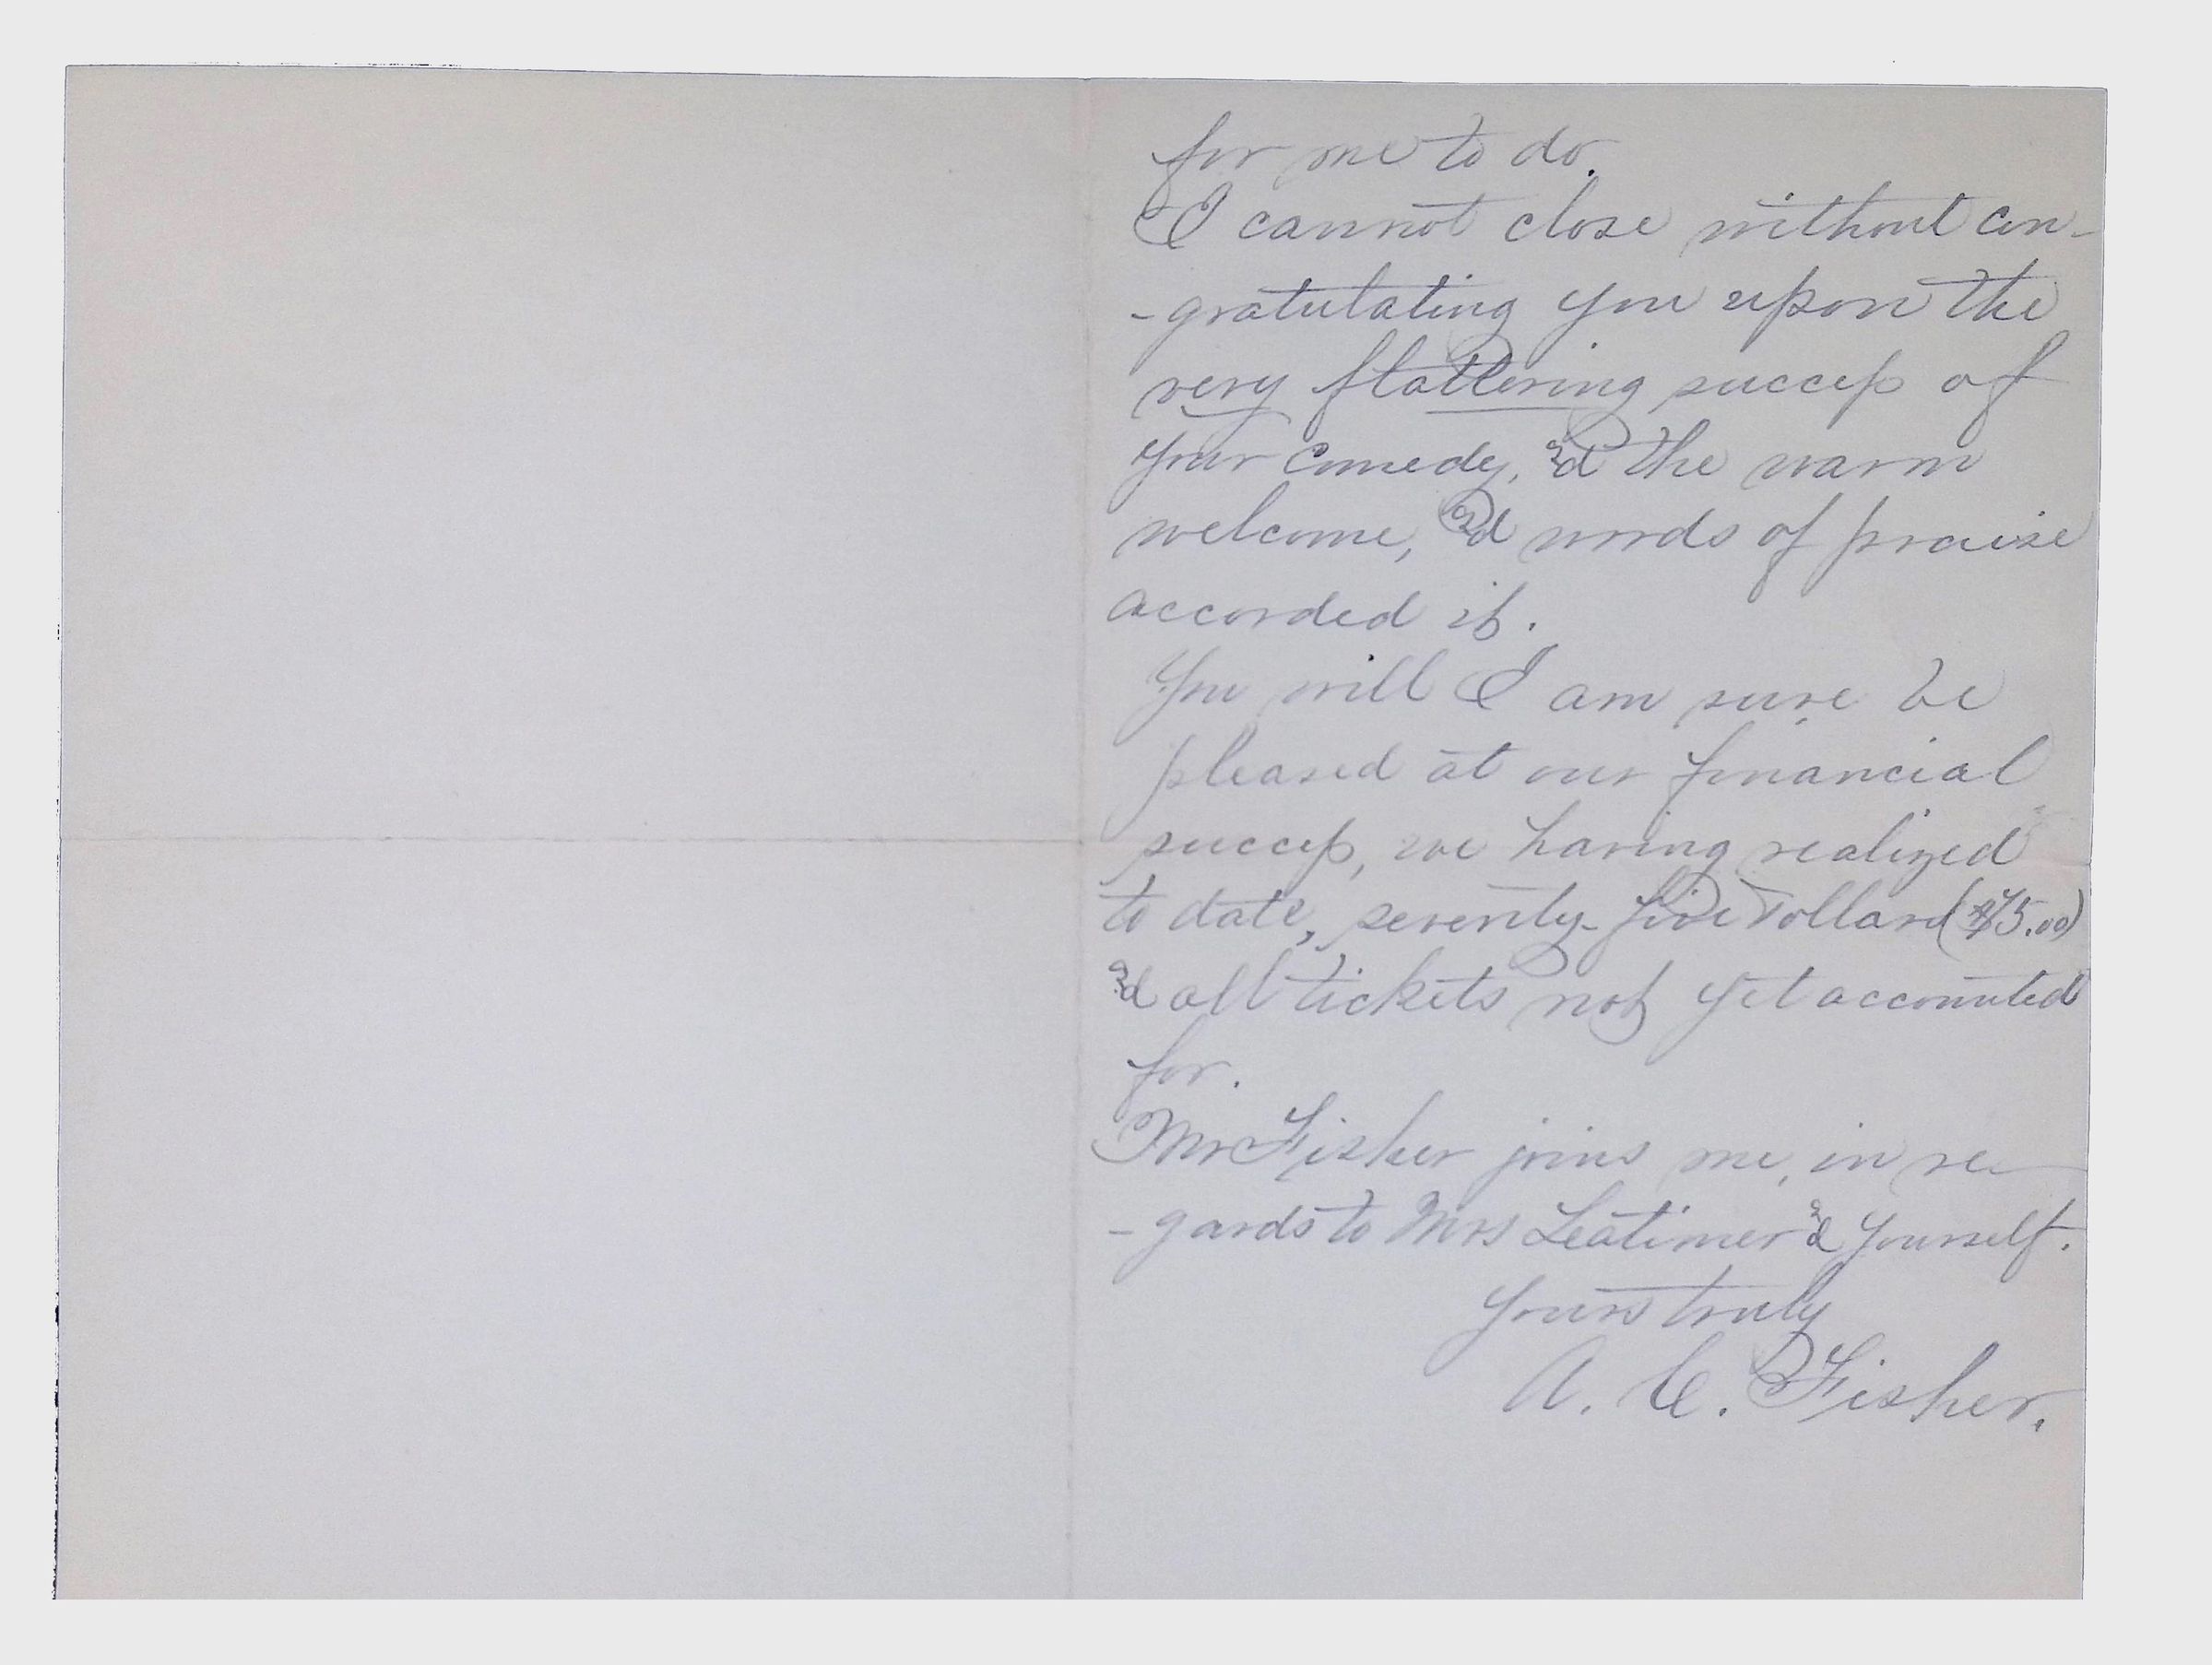 for me to do.
I cannot close without con-
-gratulating you upon the
very flattering success of
your comedy, &d the warm
welcome, &d words of praise
accorded it.
You will I am sure be
pleased at our financial
success, we having realized
to date, seventy-five Dollars ($75.00)
&d all tickets not yet accounted
for.
Mr Fisher joins me, in re-
-gards to Mrs Leatimer &d yourself.
Yours truly
A. C. Fisher.